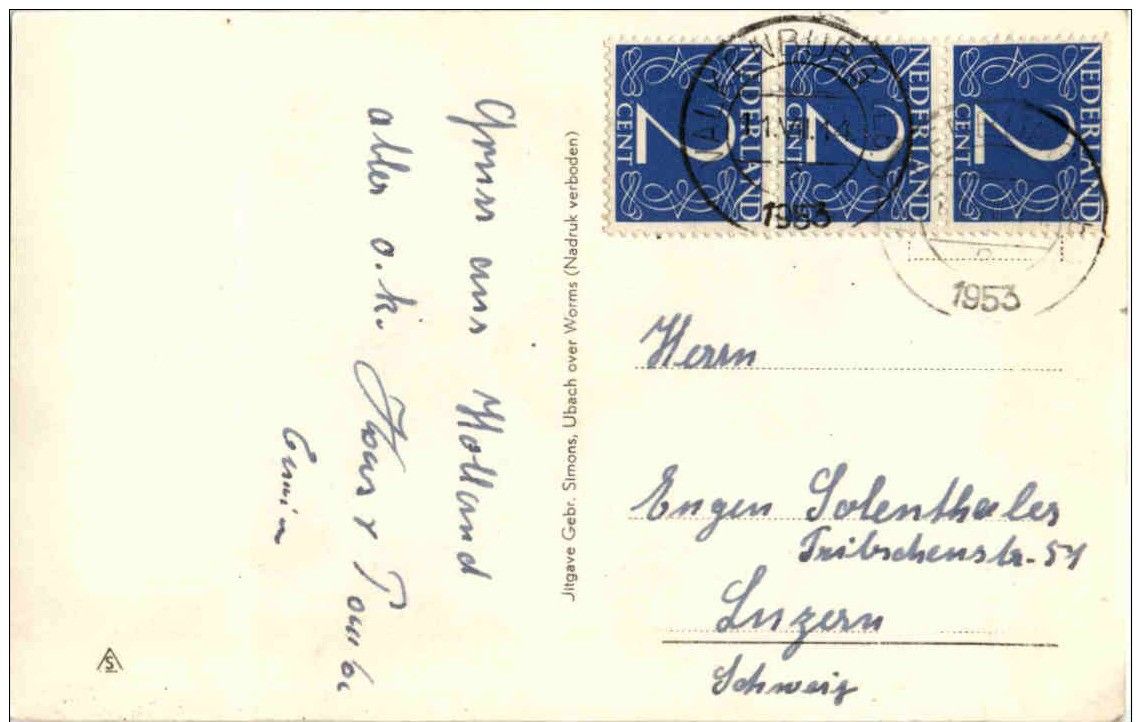 Gruss aus Holland
alles o.k.
Erwin
Jitgave Gebr. Simons, Ubach over Worms (Nadruk verboden)
NEDERLAND
2
CENT
NEDERLAND
2
CENT
NEDERLAND
2
CENT
VALKENBURG
1953
1953
Herrn
Eugen Solenthaler
Tribschenstr. 51
Luzern
Schweiz
S